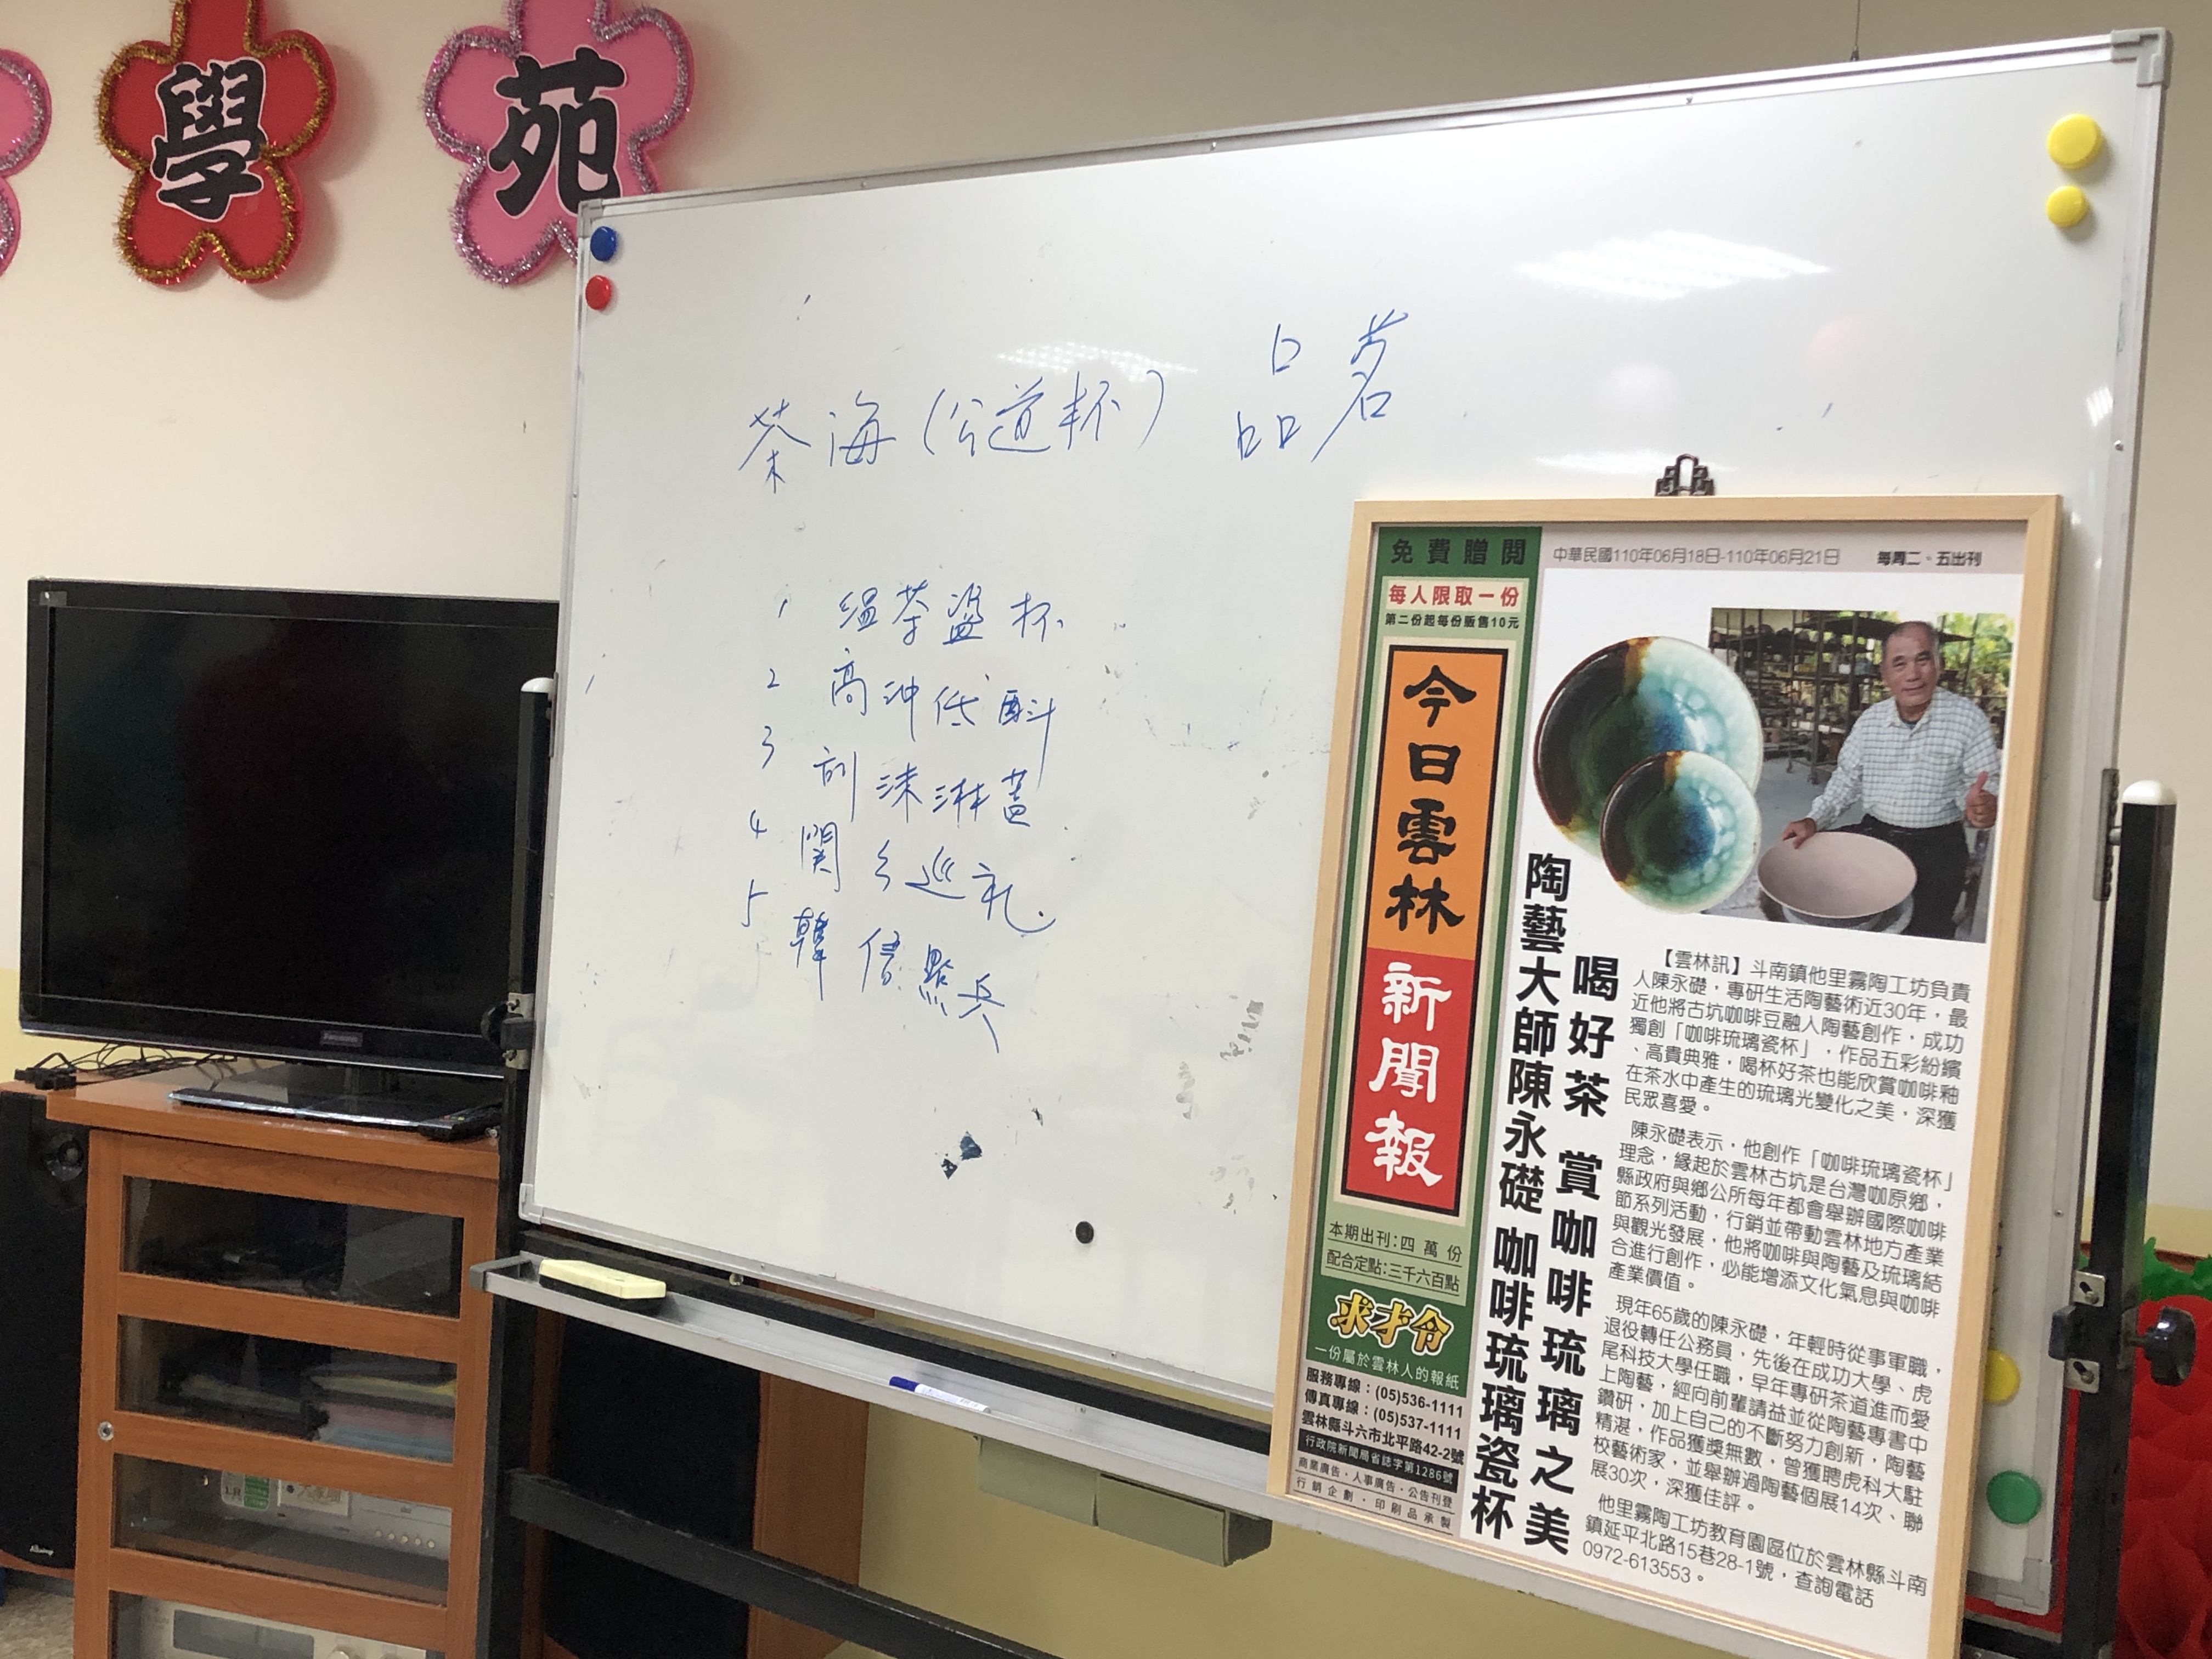 學 苑
茶海(公道杯) 品茗
1 溫茶盪杯
2 高沖低斟
3 刮沫淋蓋
4 関公巡礼.
5 韓信點兵
免費贈閱
每人限取一份
第二份起每份販售10元
今日雲林
新聞報
本期出刊:四萬份
配合定點:三千六百點
求才令
一份屬於雲林人的報紙
服務專線:(05)536-1111
傳真專線:(05)537-1111
雲林縣斗六市北平路42-2號
行政院新聞局省誌字第1286號
商業廣告・人事廣告・公告刊登
行銷企劃・印刷品承製
中華民國110年06月18日-110年06月21日 每周二、五出刊
喝好茶 賞咖啡琉璃之美
陶藝大師陳永礎 咖啡琉璃瓷杯
【雲林訊】斗南鎮他里霧陶工坊負責
人陳永礎,專研生活陶藝術近30年,最
近他將古坑咖啡豆融入陶藝創作,成功
獨創「咖啡琉璃瓷杯」,作品五彩紛繽
、高貴典雅,喝杯好茶也能欣賞咖啡釉
在茶水中產生的琉璃光變化之美,深獲
民眾喜愛。
陳永礎表示,他創作「咖啡琉璃瓷杯」
理念,緣起於雲林古坑是台灣咖原鄉,
縣政府與鄉公所每年都會舉辦國際咖啡
節系列活動,行銷並帶動雲林地方產業
與觀光發展,他將咖啡與陶藝及琉璃結
合進行創作,必能增添文化氣息與咖啡
產業價值。
現年65歲的陳永礎,年輕時從事軍職,
退役轉任公務員,先後在成功大學、虎
尾科技大學任職,早年專研茶道進而愛
上陶藝,經向前輩請益並從陶藝專書中
鑽研,加上自己的不斷努力創新,陶藝
精湛,作品獲獎無數,曾獲聘虎科大駐
校藝術家,並舉辦過陶藝個展14次、聯
展30次,深獲佳評。
他里霧陶工坊教育園區位於雲林縣斗南
鎮延平北路15巷28-1號,查詢電話
0972-613553。